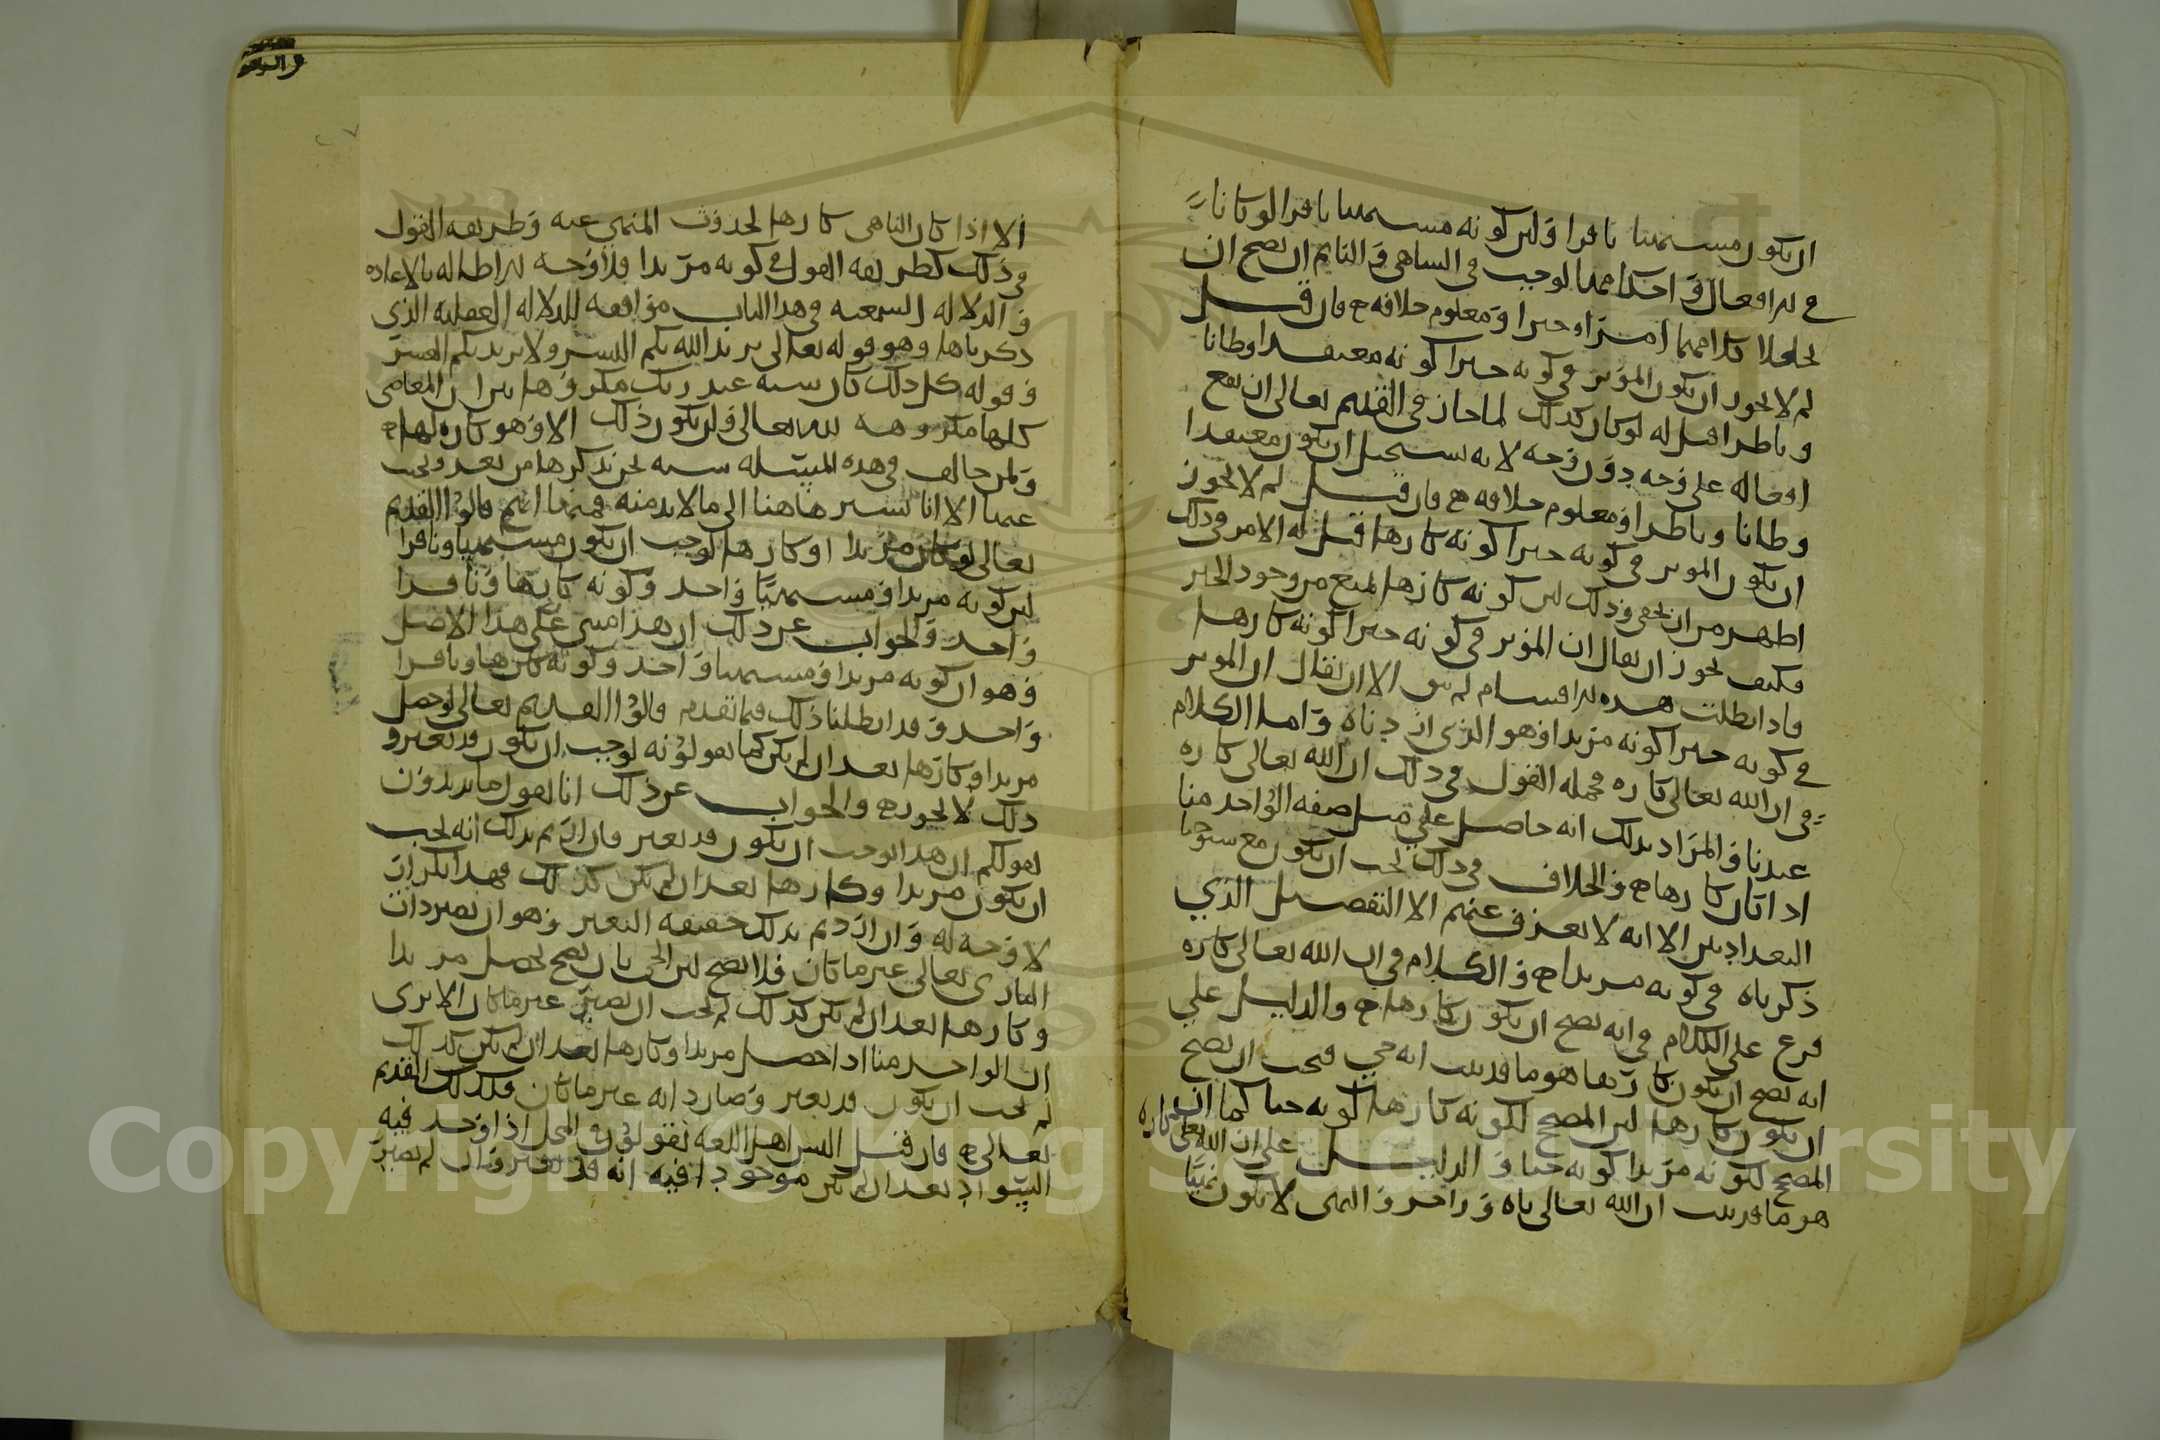 ان يكون مسمسا نافرا ولن كونه مسمسا نافرا لو كانا
في الافعال واحكامهما لوجب في الساهي والنائم ان يصح ان
يجعلا كلامهما امرا وخبرا ومعلوم خلافه فان قيل
لم لا يجوز ان يكون المؤثر في كونه خبرا كونه معتقدا وظانا
وناظرا قيل له لو كان كذلك لما جاز في القديم تعالى ان يقع
افعاله على وجه دون وجه لانه يستحيل ان يكون معتقدا
وظانا وناظرا ومعلوم خلافه فان قيل لم لا يجوز
ان يكون المؤثر في كونه خبرا كونه كارها قيل له الامر في ذلك
اظهر من ان يخفى وذلك لان كونه كارها يمنع من وجود الخبر
فكيف يجوز ان يقال ان المؤثر في كونه خبرا كونه كارها
فاذا بطلت هذه الاقسام لم يبق الا ان يقال ان المؤثر
في كونه خبرا كونه مريدا وهو الذي اردناه واما الكلام
في ان الله تعالى كاره فجملة القول في ذلك ان الله تعالى كاره
عندنا والمراد بذلك انه حاصل على مثل صفة الواحد منا
اذا كان كارها والخلاف في ذلك يجب ان يكون مع شيوخنا
البغداديين الا انه لا يعرف عنهم الا التفصيل الذي
ذكرناه في كونه مريدا والكلام في ان الله تعالى كاره
فرع على الكلام في انه يصح ان يكون كارها والدليل على
انه يصح ان يكون كارها هو ما قد ثبت انه حي فيجب ان يصح
ان يكون كارها لان المصحح لكونه كارها كونه حيا كما ان
المصحح لكونه مريدا كونه حيا والدليل على ان الله تعلى كاره
هو ما قد ثبت ان الله تعالى ناه وزاجر والنهي لا يكون نهيا
الا اذا كان الناهي كارها لحدوث المنهي عنه وطريقه القول
في ذلك كطريقه القول في كونه مريدا فلا وجه للاطاله بالاعاده
والدلاله السمعيه في هذا الباب موافقه للدلاله العقليه الذي
ذكرناها وهو قوله تعالى يريد الله بكم اليسر ولا يريد بكم العسر
وقوله كل ذلك كان سيه عند ربك مكروها بين ان المعاصي
كلها مكروهه لله تعالى ولن يكون ذلك الا وهو كاره لها
ولمن خالف في هذه المسئله شبه نحن نذكرها من بعد ونجيب
عنها الا انا نشير هاهنا الى ما لا بد منه فمنها انهم قالوا القديم
تعالى لو كان مريدا او كارها لوجب ان يكون مشتهيا ونافرا
لان كونه مريدا ومشتهيا واحد وكونه كارها ونافرا
واحد والجواب عن ذلك ان هذا مبني على هذا الاصل
وهو ان كونه مريدا ومشتهيا واحد وكونه كارها ونافرا
واحد وقد ابطلنا ذلك فيما تقدم قالوا القديم تعالى لو حصل
مريدا وكارها بعد ان لم يكن كما تقولونه لوجب ان يكون قد تغير و
ذلك لا يجوز والجواب عن ذلك انا نقول ما تريدون
بقولكم ان هذا يوجب ان يكون قد تغير فان اردتم بذلك انه يجب
ان يكون مريدا وكارها بعد ان لم يكن كذلك فهذا مكرر
لا وجه له وان اردتم بذلك حقيقه التغير وهو ان تصير ذات
الباري تعالى غير ما كان فلا يصح لان الحي بان يصح يحصل مريدا
وكارها بعد ان لم يكن كذلك لم يجب ان يصير غير ما كان الا ترى
ان الواحد منا اذا حصل مريدا وكارها بعد ان لم يكن كذلك
لم يجب ان يكون قد تغير وصار ذاته غير ما كان فكذلك القديم
تعالى فان قيل اليس اهل اللغه يقولون في المحل اذا وجد فيه
السواد بعد ان لم يكن موجودا فيه انه قد تغير وان لم يصير
Copyright © King Saud University